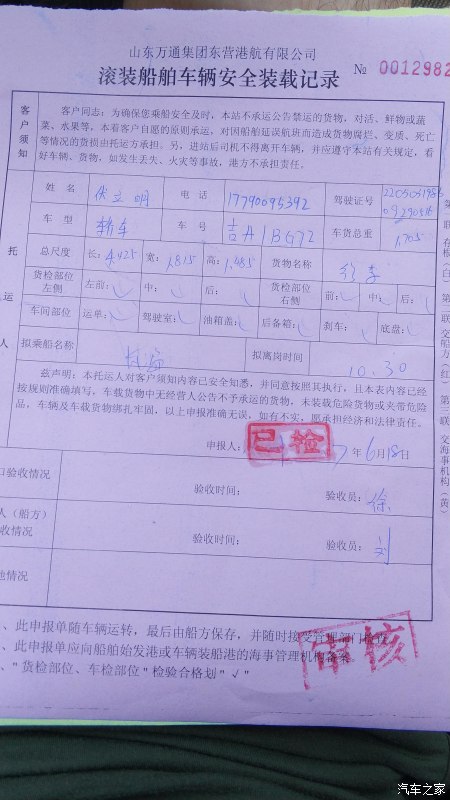 山东万通集团东营港航有限公司
滚装船舶车辆安全装载记录
№ 0012982
客户须知
客户同志：为确保您乘船安全及时，本站不承运公告禁运的货物，对活、鲜物或蔬
菜、水果等，本着客户自愿的原则承运，对因船舶延误航班而造成货物腐烂、变质、死亡
等情况的货损由托运方承担。另，进站后司机不得离开车辆，并应遵守本站有关规定，看
好车辆、货物，如发生丢失、火灾等事故，港方不承担责任。
托运人
姓 名 电 话 17790095392 驾驶证号
车 型 轿车 车 号 吉A1BG72 车货总重 1.705
总尺度 长：4.425 宽：1.815 高：1.485 货物名称 行李
货检部位左侧 左前：√ 中：√ 后：√ 货检部位右侧 前：√ 中：√ 后：√
车间部位 运单：√ 驾驶室：√ 油箱盖：√ 后备箱：√ 刹车：√ 底盘：√
拟乘船名称 拟离岗时间 10.30
兹声明：本托运人对客户须知内容已安全知悉，并同意按照其执行，且本表内容已经
按规则准确填写，车载货物中无经营人公告不予承运的货物，未装载危险货物或夹带危险
品，车辆及车载货物绑扎牢固，以上申报准确无误，如有不实，愿承担经济和法律责任。
申报人：
已检
年 6月18日
口验收情况 验收时间： 验收员：徐
人（船方）
收情况 验收时间； 验收员：刘
他情况
、此申报单随车辆运转，最后由船方保存，并随时接受管理部门检查
、此申报单应向船舶始发港或车辆装船港的海事管理机构备案
、"货检部位、车检部位"检验合格划"√"
审核
第一联 存根（白） 第二联 交船方（红） 第三联 交海事机构（黄）
汽车之家